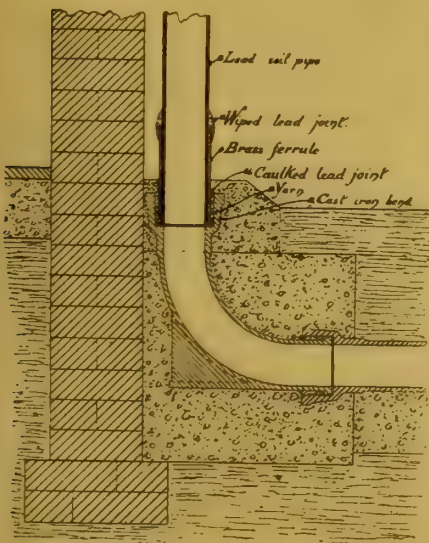 Lead soil pipe
Wiped lead joint.
Brass ferrule
Caulked lead joint
Yarn
Cast iron bend